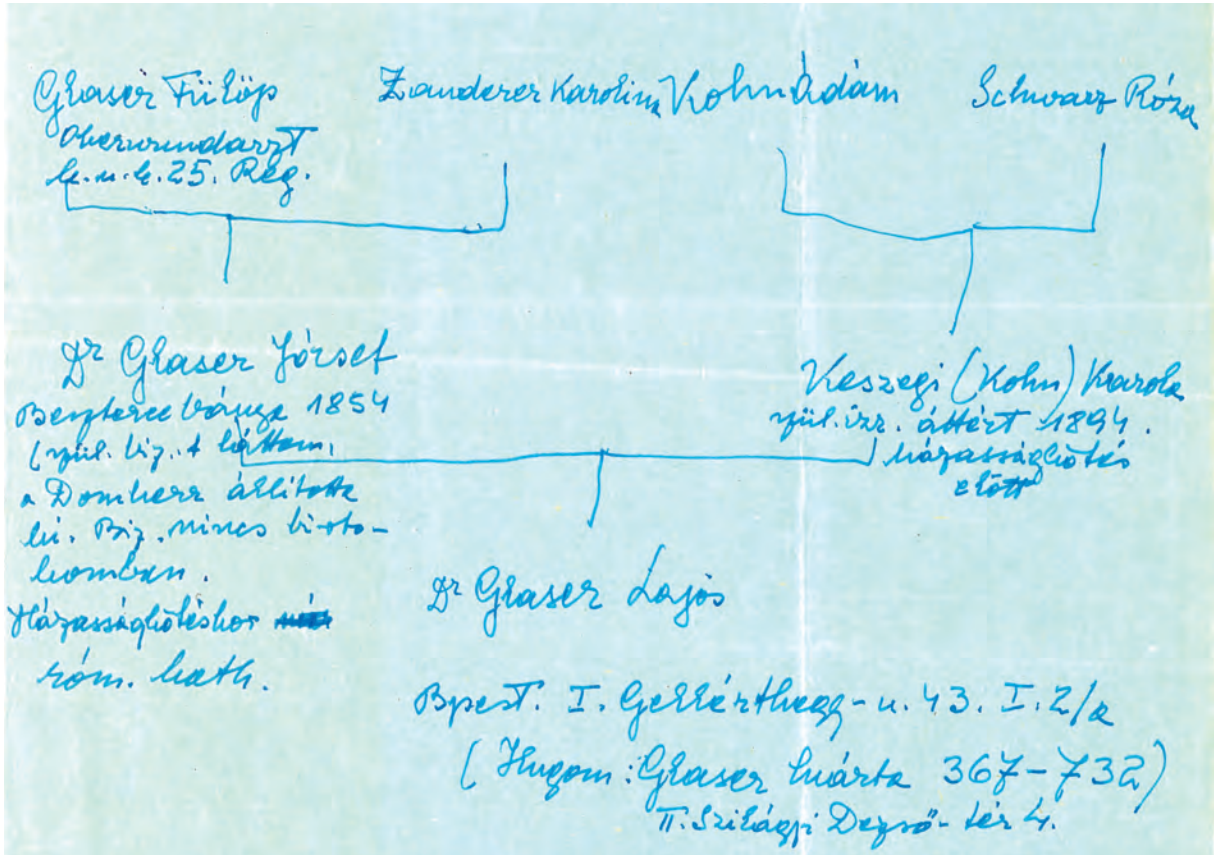 Glaser Fülöp
Oberwundarzt
k.u.k. 25. Reg.
Zanderer Karolina
Kohn Ádám
Schwarz Róza
Dr Glaser József
Besztercebánya 1854
(szül. biz.-t láttam,
a Domherr állította
ki. Biz. nincs birto-
komban.
Házasságkötéskor
róm. kath.
Keszegi (Kohn) Karola
szül. izr. áttért 1894.
házasságkötés
előtt
Dr Glaser Lajos
Bpest. I. Gellérthegy-u. 43. I. 2/a
(Hugom: Glaser Márta 367-732)
II. Szilágyi Dezső-tér 4.